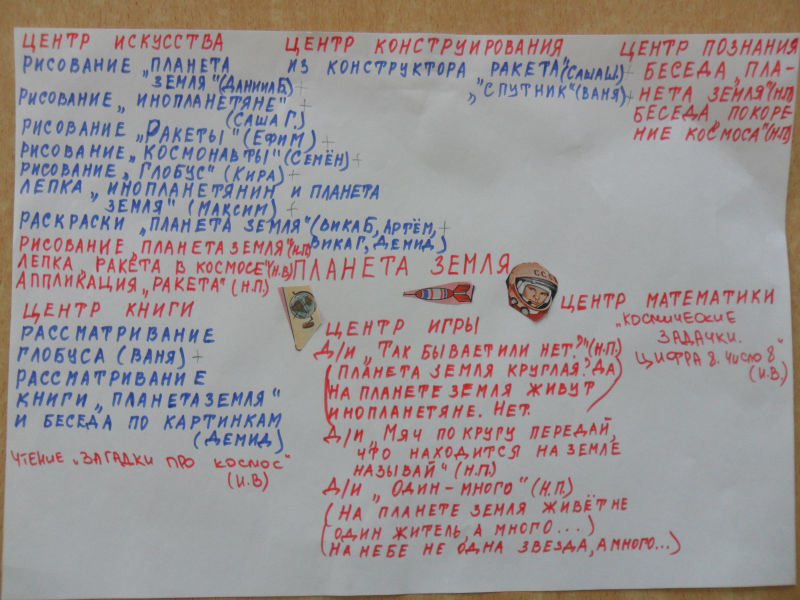 ЦЕНТР ИСКУССТВА
РИСОВАНИЕ „ПЛАНЕТА
ЗЕМЛЯ" (ДАНИИЛ Б.) +
РИСОВАНИЕ „ИНОПЛАНЕТЯНЕ" +
(САША Г.)
РИСОВАНИЕ „РАКЕТЫ" (ЕФИМ) +
РИСОВАНИЕ „КОСМОНАВТЫ" (СЕМЁН) +
РИСОВАНИЕ „ГЛОБУС" (КИРА) +
ЛЕПКА „ИНОПЛАНЕТЯНИН И ПЛАНЕТА
ЗЕМЛЯ" (МАКСИМ) +
РАСКРАСКИ „ПЛАНЕТА ЗЕМЛЯ" (ВИКА Б, АРТЁМ, +
ВИКА Г, ДЕМИД)
РИСОВАНИЕ „ПЛАНЕТА ЗЕМЛЯ" (Н.П)
ЛЕПКА „РАКЕТА В КОСМОСЕ" (И.В)
АППЛИКАЦИЯ „РАКЕТА" (Н.П.)
ЦЕНТР КОНСТРУИРОВАНИЯ
ИЗ КОНСТРУКТОРА РАКЕТА" (САША Ш.) +
„СПУТНИК" (ВАНЯ) +
ЦЕНТР ПОЗНАНИЯ
БЕСЕДА „ПЛА-
НЕТА ЗЕМЛЯ" (Н.П)
БЕСЕДА „ПОКОРЕ-
НИЕ КОСМОСА" (Н.П)
ПЛАНЕТА ЗЕМЛЯ
СССР
ЦЕНТР КНИГИ
РАССМАТРИВАНИЕ
ГЛОБУСА (ВАНЯ) +
РАССМАТРИВАНИЕ
КНИГИ „ПЛАНЕТА ЗЕМЛЯ"
И БЕСЕДА ПО КАРТИНКАМ
(ДЕМИД)
ЧТЕНИЕ „ЗАГАДКИ ПРО КОСМОС"
(И.В)
ЦЕНТР ИГРЫ
Д/И „ТАК БЫВАЕТ ИЛИ НЕТ?" (Н.П)
(ПЛАНЕТА ЗЕМЛЯ КРУГЛАЯ? ДА
НА ПЛАНЕТЕ ЗЕМЛЯ ЖИВУТ
ИНОПЛАНЕТЯНЕ. НЕТ.)
Д/И „МЯЧ ПО КРУГУ ПЕРЕДАЙ,
ЧТО НАХОДИТСЯ НА ЗЕМЛЕ
НАЗЫВАЙ" (Н.П)
Д/И „ОДИН – МНОГО" (Н.П.)
(НА ПЛАНЕТЕ ЗЕМЛЯ ЖИВЁТ НЕ
ОДИН ЖИТЕЛЬ, А МНОГО...)
(НА НЕБЕ НЕ ОДНА ЗВЕЗДА, А МНОГО...)
ЦЕНТР МАТЕМАТИКИ
„КОСМИЧЕСКИЕ
ЗАДАЧКИ.
ЦИФРА 8. ЧИСЛО 8"
(И.В.)